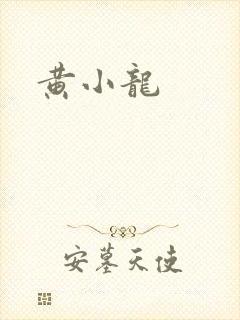 黄小龍
安墓天使